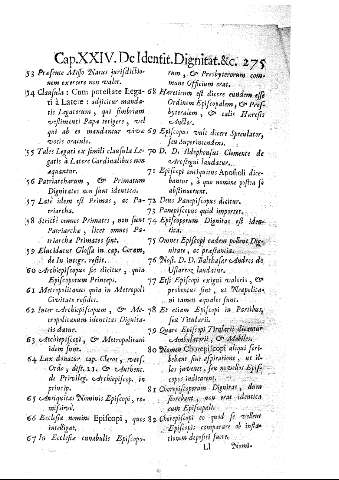 Cap. XXIV. De Identit. Dignitat. &c. 275
53 Præsente Misso Natus jurisdictionem exercere non valet.
54 Clausula: Cum potestate Legati à Latere: adjicitur mandatis Legatorum, qui
vestimenti Papæ tetigere, vel
qui ab eo mandantur vivæ
vocis oraculo.
55 Tales Legati ex simili clausula Legatis à Latere Cardinalibus non
æquantur.
56 Patriarcharum, & Primatum
Dignitates non sunt identicæ.
57 Latè idem est Primas, ac Patriarcha.
58 Strictè omnes Primates, non sunt
Patriarchæ, licet omnes Patriarchæ Primates sint.
59 Elucidatur Glossa in cap. Coram,
de In integr. restit.
60 Archiepiscopus sic dicitur, quia
Episcoporum Princeps.
61 Metropolitanus quia in Metropoli
Civitate residet.
62 Inter Archiepiscopum, & Metropolitanum identitas Dignitatis datur.
63 Archiepiscopi, & Metropolitani
idem sunt.
64 Lux donatur cap. Cleros, vers.
Ordo, dist. 21. & Authent.
de Privileg. Archiepiscop. in
princip.
65 Antiquitas Nominis Episcopi, remissivè.
66 Ecclesiæ nomine Episcopi, quos
intelligat.
67 In Ecclesiæ cunabulis Episcoporum, & Presbyterorum commune Officium erat.
68 Hæreticum est dicere eundem esse
Ordinem Episcopalem, & Presbyteralem, & talis Hæresis
Auctor.
69 Episcopus vult dicere Speculator,
seu Superintendens.
70 D. D. Ildephonsus Clemente de
Arostegui laudatur.
71 Episcopi antiquitùs Apostoli dicebantur, à quo nomine postea se
abstinuerunt.
72 Deus Panepiscopus dicitur.
73 Panepiscopus quid importet.
74 Episcoporum Dignitas est identica.
75 Omnes Episcopi eadem pollent Dignitate, ac præstantia.
76 Nost. D. D. Balthasar Andres de
Ustaroz laudatur.
77 Esse Episcopi exigui valoris, &
probentur sunt, ut Neapolitani tamen æquales sunt.
78 Et etiam Episcopi in Partibus,
seu Titulares.
79 Quare Episcopi Titulares dicantur
Ambulatorii, & Mobiles.
80 Nomen Chorepiscopi aliqui scribebant sine aspiratione, ut illos juvent, seu novellos Episcopos indicarent.
81 Chorepiscoporum Dignitas, dum
florebant, non erat identica
cum Episcopali.
82 Chorepiscopi eo quod se vellent
Episcopis comparare ab institutum deposuere
Ll Nomi-